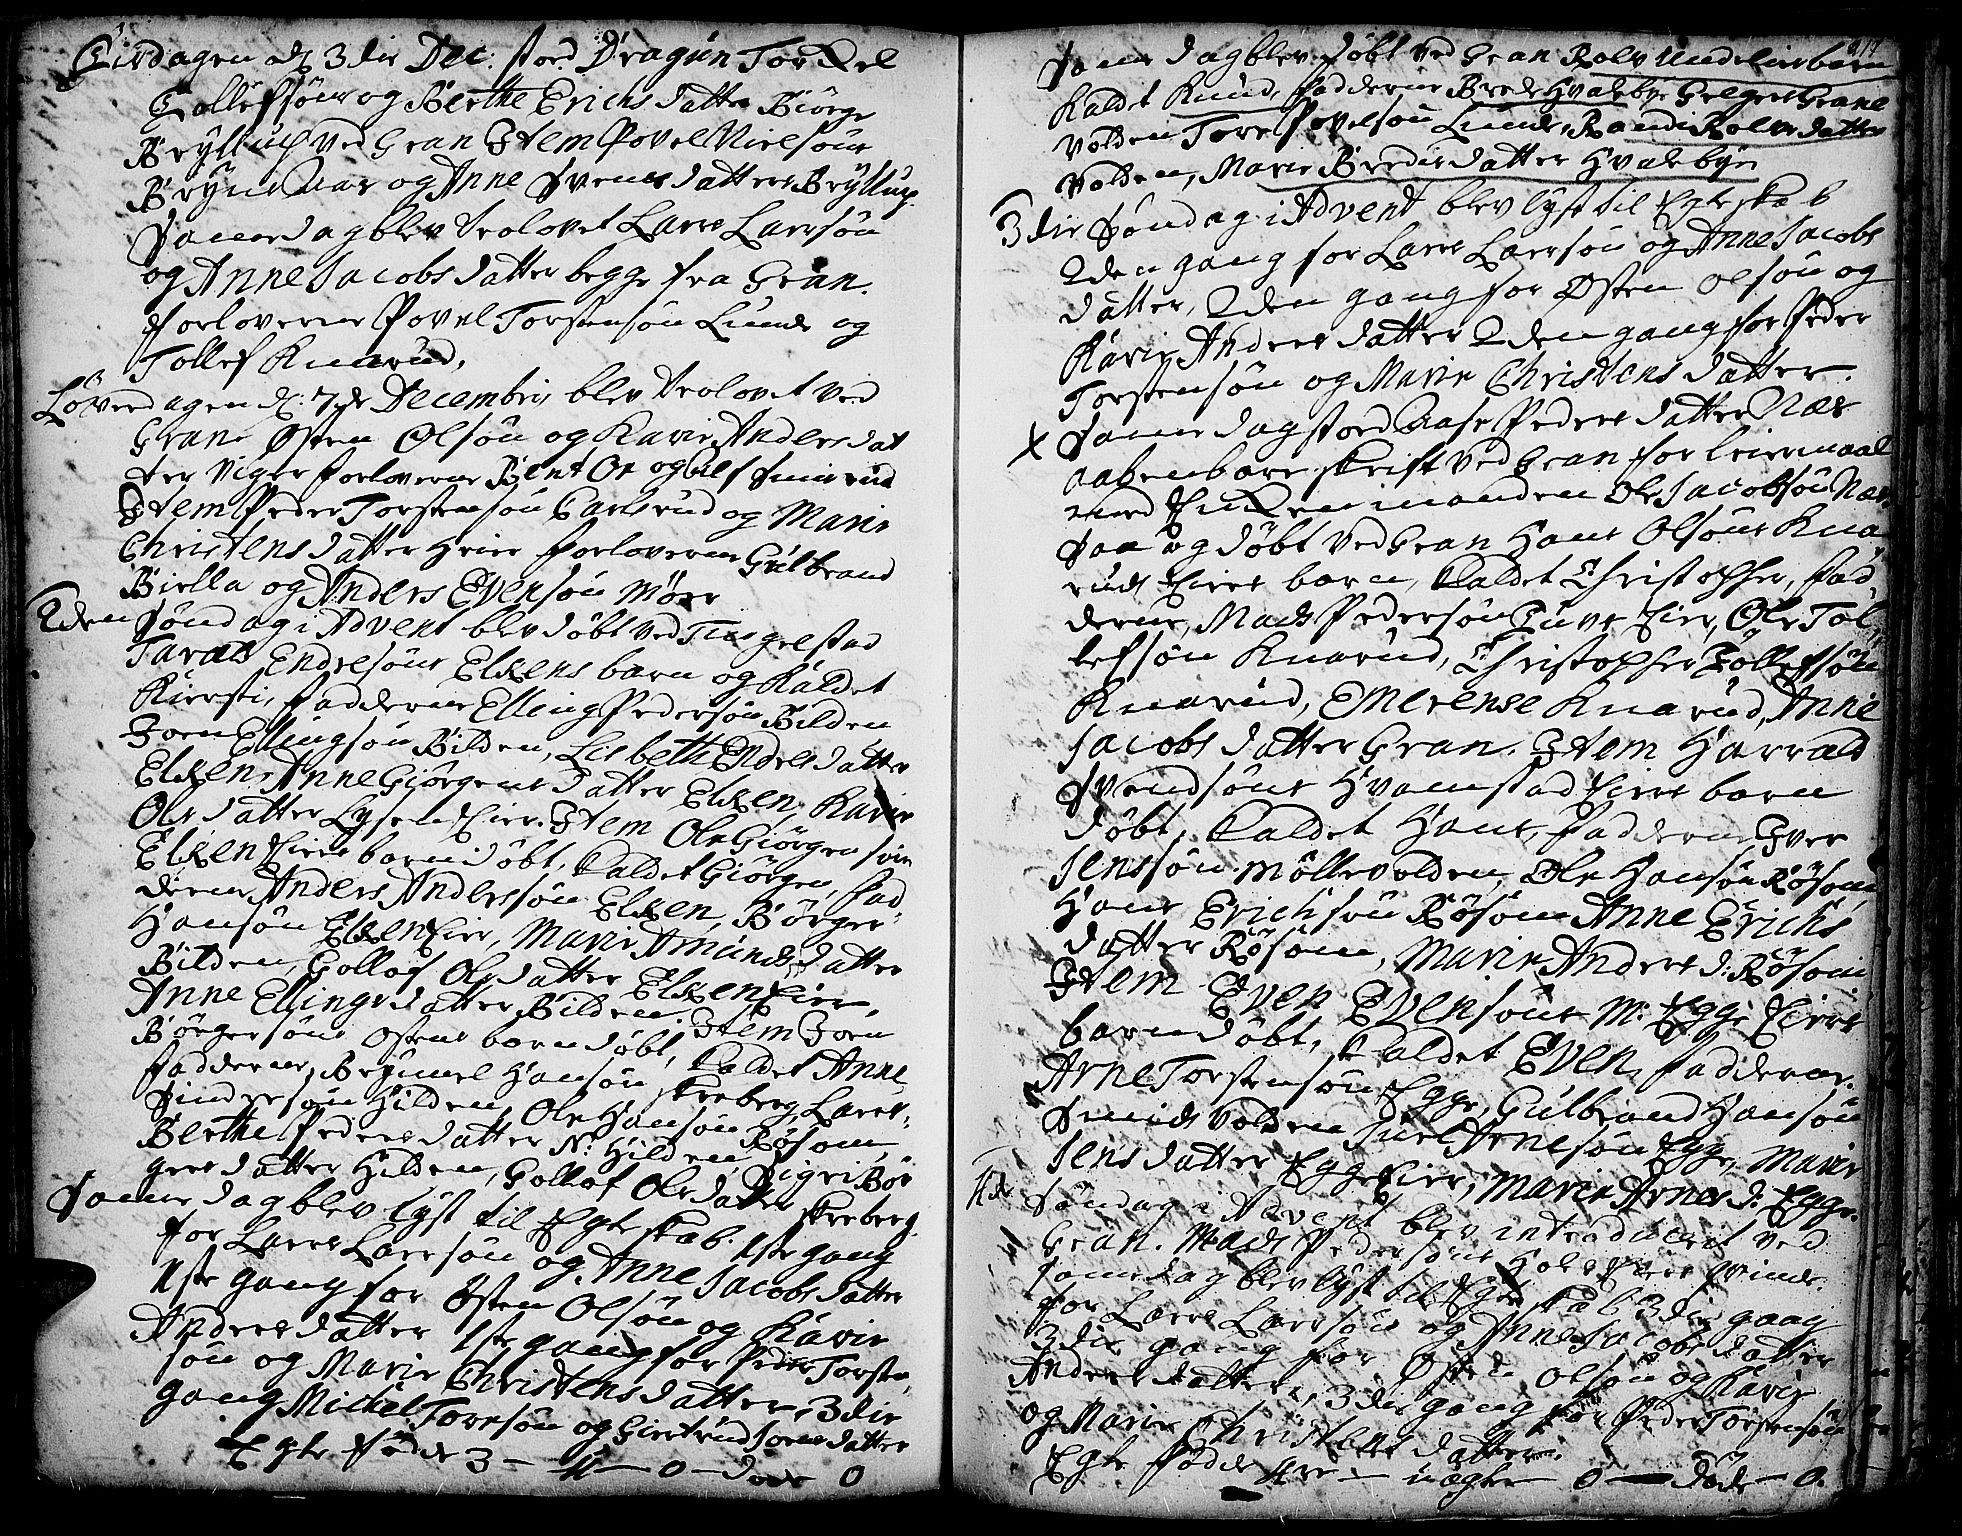 Tirsdagen d: 3die Dec. stod Dragun Torkel
Tollefsøns og Berthe Erichs datter Biørge
Bryllup ved Gran Item Povel Nielsøns
Brynsaas og Anne Svens datters Bryllup
Same dag blev trolovet Lars Larsøn
og Anne Jacobs datter begge fra Gran.
Forloverne Povel Torstensøn Lunde og
Tollef Knarud.
Løverdagen d: 7de Decembris blev trolovet ved
Gran Østen Olsøn og Karie Anders dat
ter Viger forloverne Bent Oe og Ulf
Item Peder Torstensøn Carlsrud og Marie
Christens datter Heier forloverne Gulbrand
Biella og Anders Evensøn Møer
2den Søndag i Advent blev døbt ved Tingelstad
Tarald Endresøns Elken barn og kaldet
Kiersti, fadderne Elling Pedersøn Bilden
Joen Ellingsøn Bilden, Lisbeth Endres datter
Elken, Anne Giørgens datter Elken, Karie
Ols datter Lysen Eier. Item Ole Giørgensøn
Elken Eiers barn døbt, kaldet Giørgen, fad
derne, Anders Anderssøn Elken, Børger
Hansøn Elken Eier, Marie Amunds datter
Bilden, Gollof Ols datter Elken Eier
Anne Ellings datter Bilden. Item Joen
Børgersøns Østens barn døbt, kaldet Anne
fadderne, Brynnel Hansøn Skreberg, Lars
Sindersøn Hilden, Ole Hansøn Røsom,
Berthe Peders datter N: Hilden, Sigri Bør
gers datter Hilden, Gollof Ols datter Skreberg.
Same dag blev lyst til Egteskab 1ste gang
for Lars Larsøn og Anne Jacobs datter
1ste gang for Østen Olsøn og Karie
Anders datter 1ste gang for Peder Torsten
søn og Marie Christens datter, 3die
gang Michel Toresøn og Giertrud Joens datter
Egte fødde 3 — u — 0 — døde 0
217
Same dag blev døbt ved Gran Rolv Undeliens barn
kaldet Knud, fadderne Brede Hvalebye Helger Grane
volden Tore Povelsøn Lunde, Randi Rolvs datter
Volden, Marie Bredes datter Hvalebye
3die Søndag i Advent blev lyst til Egteskab
2den gang for Lars Larsøn og Anne Jacobs
datter, 2den gang for Østen Olsøn og
Karie Anders datter 2den gang for Peder
Torstensøn og Marie Christens datter.
x Same dag stod Aase Peders datter Næs
aabenbare skrift ved Gran for leiermaal
med Enkemanden Ole Jacobsøn Næs
Saa og døbt ved Gran Hans Olsøns Kna
ruds Eies barn, kaldet Christopher, fad
derne, Mads Pedersøn Eier, Ole Tol
lefsøn Knarud, Christopher Tollefsøn
Knarud, Emerense Knarud, Anne
Jacobs datter Gran. Item Harrald
Svendsøns Hvamstad Eiers barn
døbt, kaldet Hans, fadderne Iver
Jenssøn Møllevolden, Ole Hansøn Røsom
Hans Erichsøn Røsom Anne Erichs
datter Røsom, Marie Anders d: Røsom
Item Even Evensøns M: Egge Eiers
barn døbt, kaldet Even, fadderne.
Arne Torstensøn Egge, Gulbrand Hansøn
Smidsvolden Juel Arnesøn Egge, Marie
Jens datter Egge Eier, Marie Arnes d: Egge.
4de Søndag i Advent blev introducert ved
Gran. Mads Pedersøns Hole Eiers Qvinde.
Same dag blev lyst til Egteskab 3die gang
for Lars Larsøn og Anne Jacobs datter
3die gang for Østen Olsøn og Karie
Anders datter, 3die gang for Peder Torstensøn
og Marie Christens datter.
Egte fødde 4re — uægte 0 — døde — 0.